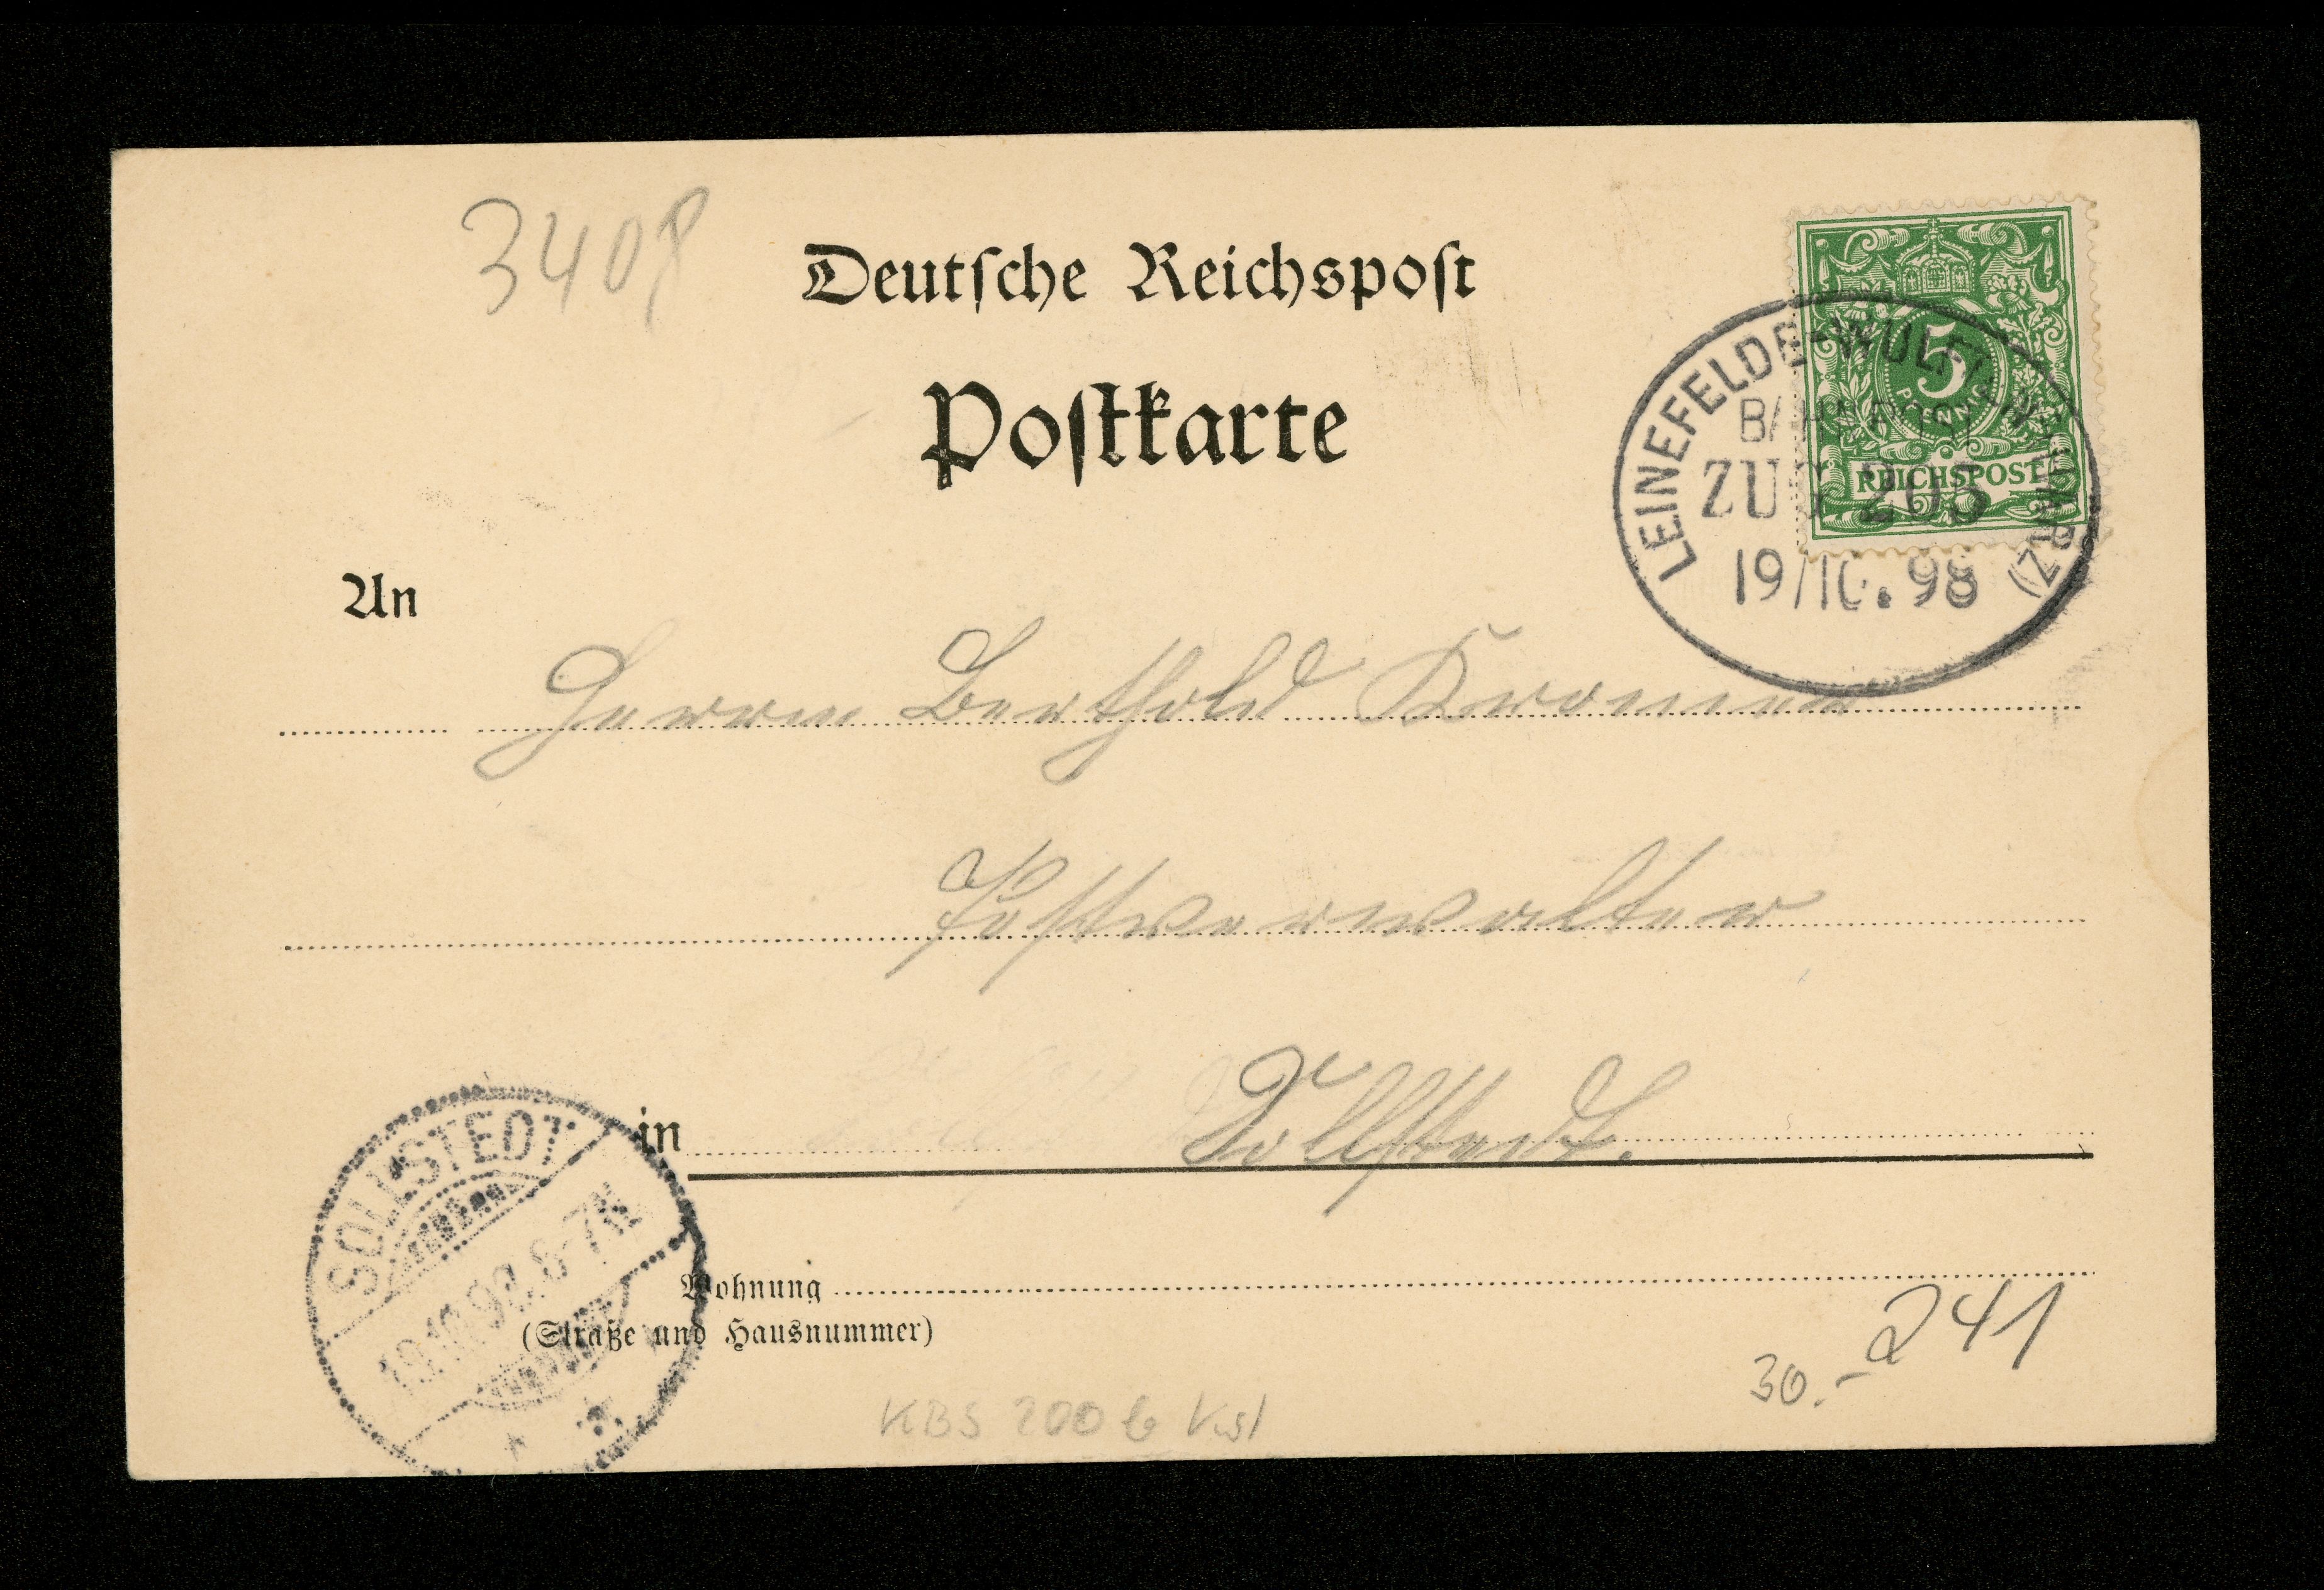 3408
Deutsche Reichspost
Postkarte
5
PFENNIG
REICHSPOST
LEINEFELDE-WULFTEN (HARZ)
BAHNPOST
ZUG 205
19/10.98
An
Herrn Berthold
Postverwalter
in Sollstedt.
SOLLSTEDT
19.10.98. 6-7N
Wohnung
(Straße und Hausnummer)
241
30.-
KBS 200